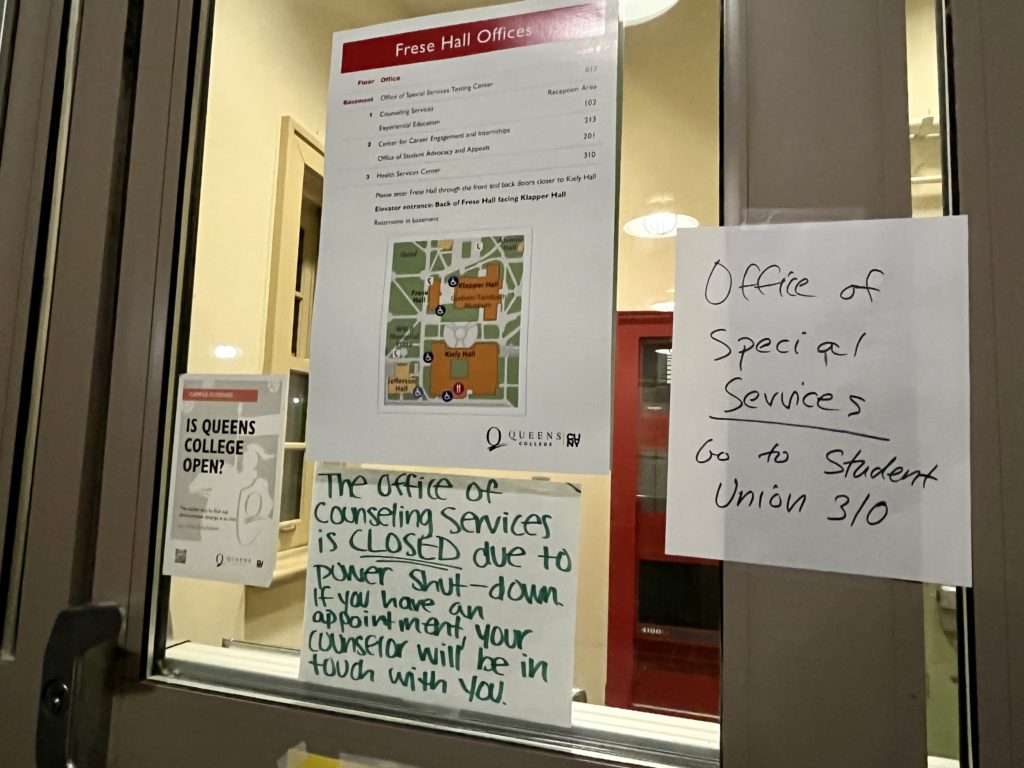 Frese Hall Offices
Floor Office
017
Basement Office of Special Services Testing Center
Reception Area
1 Counseling Services
102
Experiential Education
213
2 Center for Career Engagement and Internships
201
Office of Student Advocacy and Appeals
310
3 Health Services Center
Please enter Frese Hall through the front and back doors closer to Kiely Hall
Elevator entrance: Back of Frese Hall facing Klapper Hall
Restrooms in basement
Quad
Hall
Klapper Hall
Frese
Hall
Museum
Kiely Hall
Jefferson
Hall
QUEENS
COLLEGE
CAMPUS CLOSINGS
IS QUEENS
COLLEGE
OPEN?
QUEENS
COLLEGE
The Office of
Counseling Services
is CLOSED due to
power shut-down.
If you have an
appointment, your
counselor will be in
touch with you.
Office of
Special
Services
Go to Student
Union 310